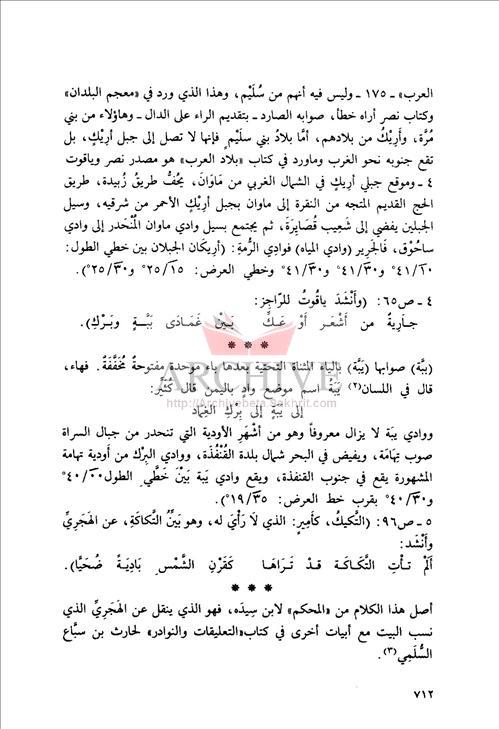 العرب» ـ ١٧٥ ـ وليس فيه أنهم من سُلَيْم، وهذا الذي ورد في «معجم البلدان»
وكتاب نصر أراه خطأ، صوابه الصارد ـ بتقديم الراء على الدال ـ وهاؤلاء من بني
مُرَّة، وأَرِيْكُ من بلادهم، أمَّا بلادُ بني سلَيمٍ فإنها لا تصل إلى جبل أرِيْكٍ، بل
تقع جنوبه نحو الغرب وماورد في كتاب «بلاد العرب» هو مصدر نصر وياقوت
٤ ـ وموقع جبلي أريكٍ في الشمال الغربي من مَاوَانَ، يَحُفُّ طريقُ زُبيدة، طريق
الحج القديم المتجه من النقرة إلى ماوان بجبل أرِيْكٍ الأحمر من شرقيه، وسيل
الجبلين يفضي إلى شَعيب قُصَايِرَةَ، ثم يجتمع بسيل وادي ماوان المُنْحَدر إلى وادي
ساحُوْق، فالجَرِير (وادي المياه) فوادِي الرُّمةِ: (أريْكَان الجبلان بين خطي الطول:
١٠/٤١° و٣٠/٤١° و٣٠/٤١° وخطي العرض: ١٥/٢٥° و٣٠/٢٥°).
٤ ـ ص٦٥: (وأَنْشَدَ ياقُوتُ للرّاجِزِ:
جارِيةٌ من أَشْعَر أَوْ عَكِّ بَيْنَ غَمَادَى بَبَّةٍ وبَرْكِ).
* * *
(ببَّة) صوابها (يَبَة) بالياء المثناة التحتية بعدها باء موحدة مفتوحةٌ مُخَفَّفَة. فهاء،
قال في اللسان(٢) يَبَةُ اسم موضع وادٍ باليمن قال كُثَيِّر:
إلى يَبَةٍ إلى بِرْكِ الغِمَاد
ووادي يبَة لا يزال معروفاً وهو من أشْهَرِ الأودية التي تنحدر من جبال السراة
صوب تِهَامَة، ويفيض في البحر شمال بلدة القُنْفُذَة، ووادي البِرْك من أودية تهامة
المشهورة يقع في جنوب القنفذة، ويقع وادي يَبة بَيْنَ خَطَّيِ الطول ٠٠/٤٠°
و٣٠/٤٠° بقرب خط العرض: ٣٥/١٩°).
٥ ـ ص٩٦: (التَّكِيكُ، كأَمِيرٍ: الذي لا رَأْيَ له، وهو بَيِّنُ التَّكاكَةِ، عن الهَجَرِيِّ
وأَنْشَد:
أَلمْ تأْتِ التَّكَاكَةَ قدْ تَرَاهَا كَقَرْنِ الشَّمْسِ بَادِيَةً ضُحَيًّا).
* * *
أصل هذا الكلام من «المحكم» لابن سِيدَه، فهو الذي ينقل عن الهَجَرِيِّ الذي
نسب البيت مع أبيات أخرى في كتاب«التعليقات والنوادر» لحارث بن سبَّاع
السُّلَمِي(٣).
٧١٢
ARCHIVE
http://Archivebeta.Sakhrit.com